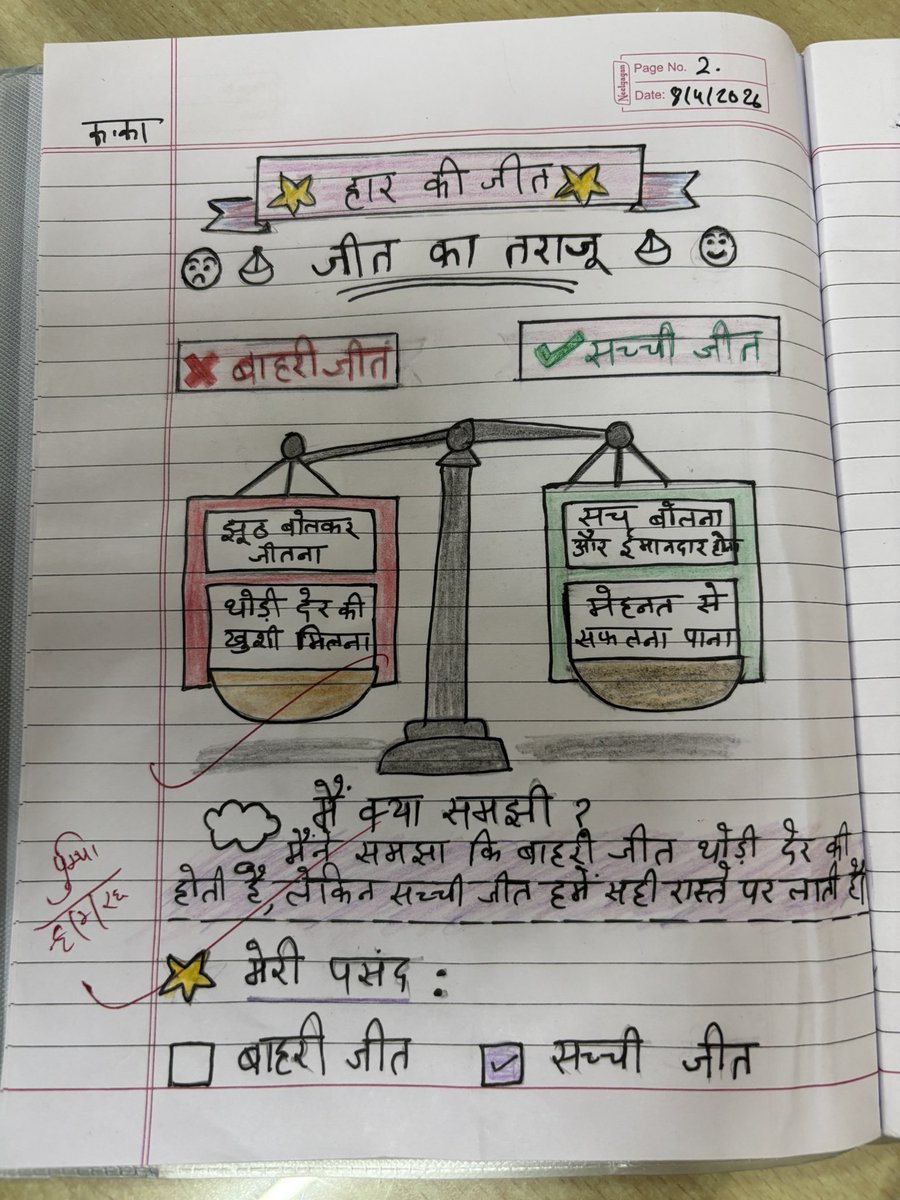 Neelgagan
Page No. 2.
Date: 9/4/2026
क.का
हार की जीत
जीत का तराजू
बाहरी जीत
सच्ची जीत
झूठ बोलकर
जीतना
थोड़ी देर की
खुशी मिलना
सच बोलना
और ईमानदार होना
मेहनत से
सफलता पाना
मैं क्या समझी ?
मैंने समझा कि बाहरी जीत थोड़ी देर की
होती है, लेकिन सच्ची जीत हमें सही रास्ते पर लाती है।
मेरी पसंद :
बाहरी जीत
सच्ची जीत